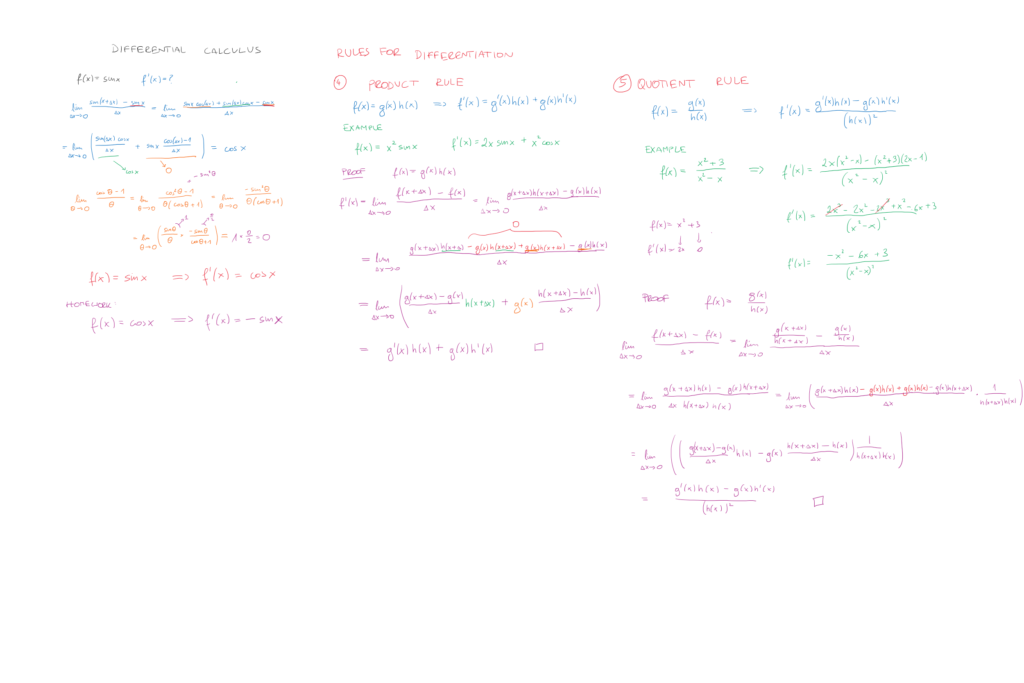 DIFFERENTIAL CALCULUS
f(x) = sinx f'(x) = ?
lim Δx→0 (sin(x+Δx) − sinx)/Δx = lim Δx→0 (sinx cos(Δx) + sin(Δx)cosx − sinx)/Δx
= lim Δx→0 ( sin(Δx) cosx/Δx + sinx (cos(Δx)−1)/Δx ) = cosx
cosx 0
−sin²θ
lim θ→0 (cosθ−1)/θ = lim θ→0 (cos²θ−1)/(θ(cosθ+1)) = lim θ→0 (−sin²θ)/(θ(cosθ+1))
= lim θ→0 ( sinθ/θ · −sinθ/(cosθ+1) ) = 1 · 0/2 = 0
f(x) = sinx ⟹ f'(x) = cosx
HOMEWORK:
f(x) = cosx ⟹ f'(x) = −sinx
RULES FOR DIFFERENTIATION
④ PRODUCT RULE
f(x) = g(x)h(x) ⟹ f'(x) = g'(x)h(x) + g(x)h'(x)
EXAMPLE
f(x) = x² sinx f'(x) = 2x sinx + x² cosx
PROOF f(x) = g(x)h(x)
f'(x) = lim Δx→0 (f(x+Δx) − f(x))/Δx = lim Δx→0 (g(x+Δx)h(x+Δx) − g(x)h(x))/Δx
0
= lim Δx→0 (g(x+Δx)h(x+Δx) − g(x)h(x+Δx) + g(x)h(x+Δx) − g(x)h(x))/Δx
= lim Δx→0 ( (g(x+Δx) − g(x))/Δx h(x+Δx) + g(x) (h(x+Δx) − h(x))/Δx )
= g'(x)h(x) + g(x)h'(x) □
⑤ QUOTIENT RULE
f(x) = g(x)/h(x) ⟹ f'(x) = (g'(x)h(x) − g(x)h'(x))/(h(x))²
EXAMPLE
f(x) = (x²+3)/(x²−x) ⟹ f'(x) = (2x(x²−x) − (x²+3)(2x−1))/(x²−x)²
f'(x) = (2x³ − 2x² − 2x³ + x² − 6x + 3)/(x²−x)²
f(x) = x² + 3
f'(x) = 2x 0
f'(x) = (−x² − 6x + 3)/(x²−x)²
PROOF f(x) = g(x)/h(x)
lim Δx→0 (f(x+Δx) − f(x))/Δx = lim Δx→0 (g(x+Δx)/h(x+Δx) − g(x)/h(x))/Δx
= lim Δx→0 (g(x+Δx)h(x) − g(x)h(x+Δx))/(Δx h(x+Δx)h(x)) = lim Δx→0 ( (g(x+Δx)h(x) − g(x)h(x) + g(x)h(x) − g(x)h(x+Δx))/Δx · 1/(h(x+Δx)h(x)) )
= lim Δx→0 ( ( (g(x+Δx)−g(x))/Δx h(x) − g(x) (h(x+Δx) − h(x))/Δx ) 1/(h(x+Δx)h(x)) )
= (g'(x)h(x) − g(x)h'(x))/(h(x))² □